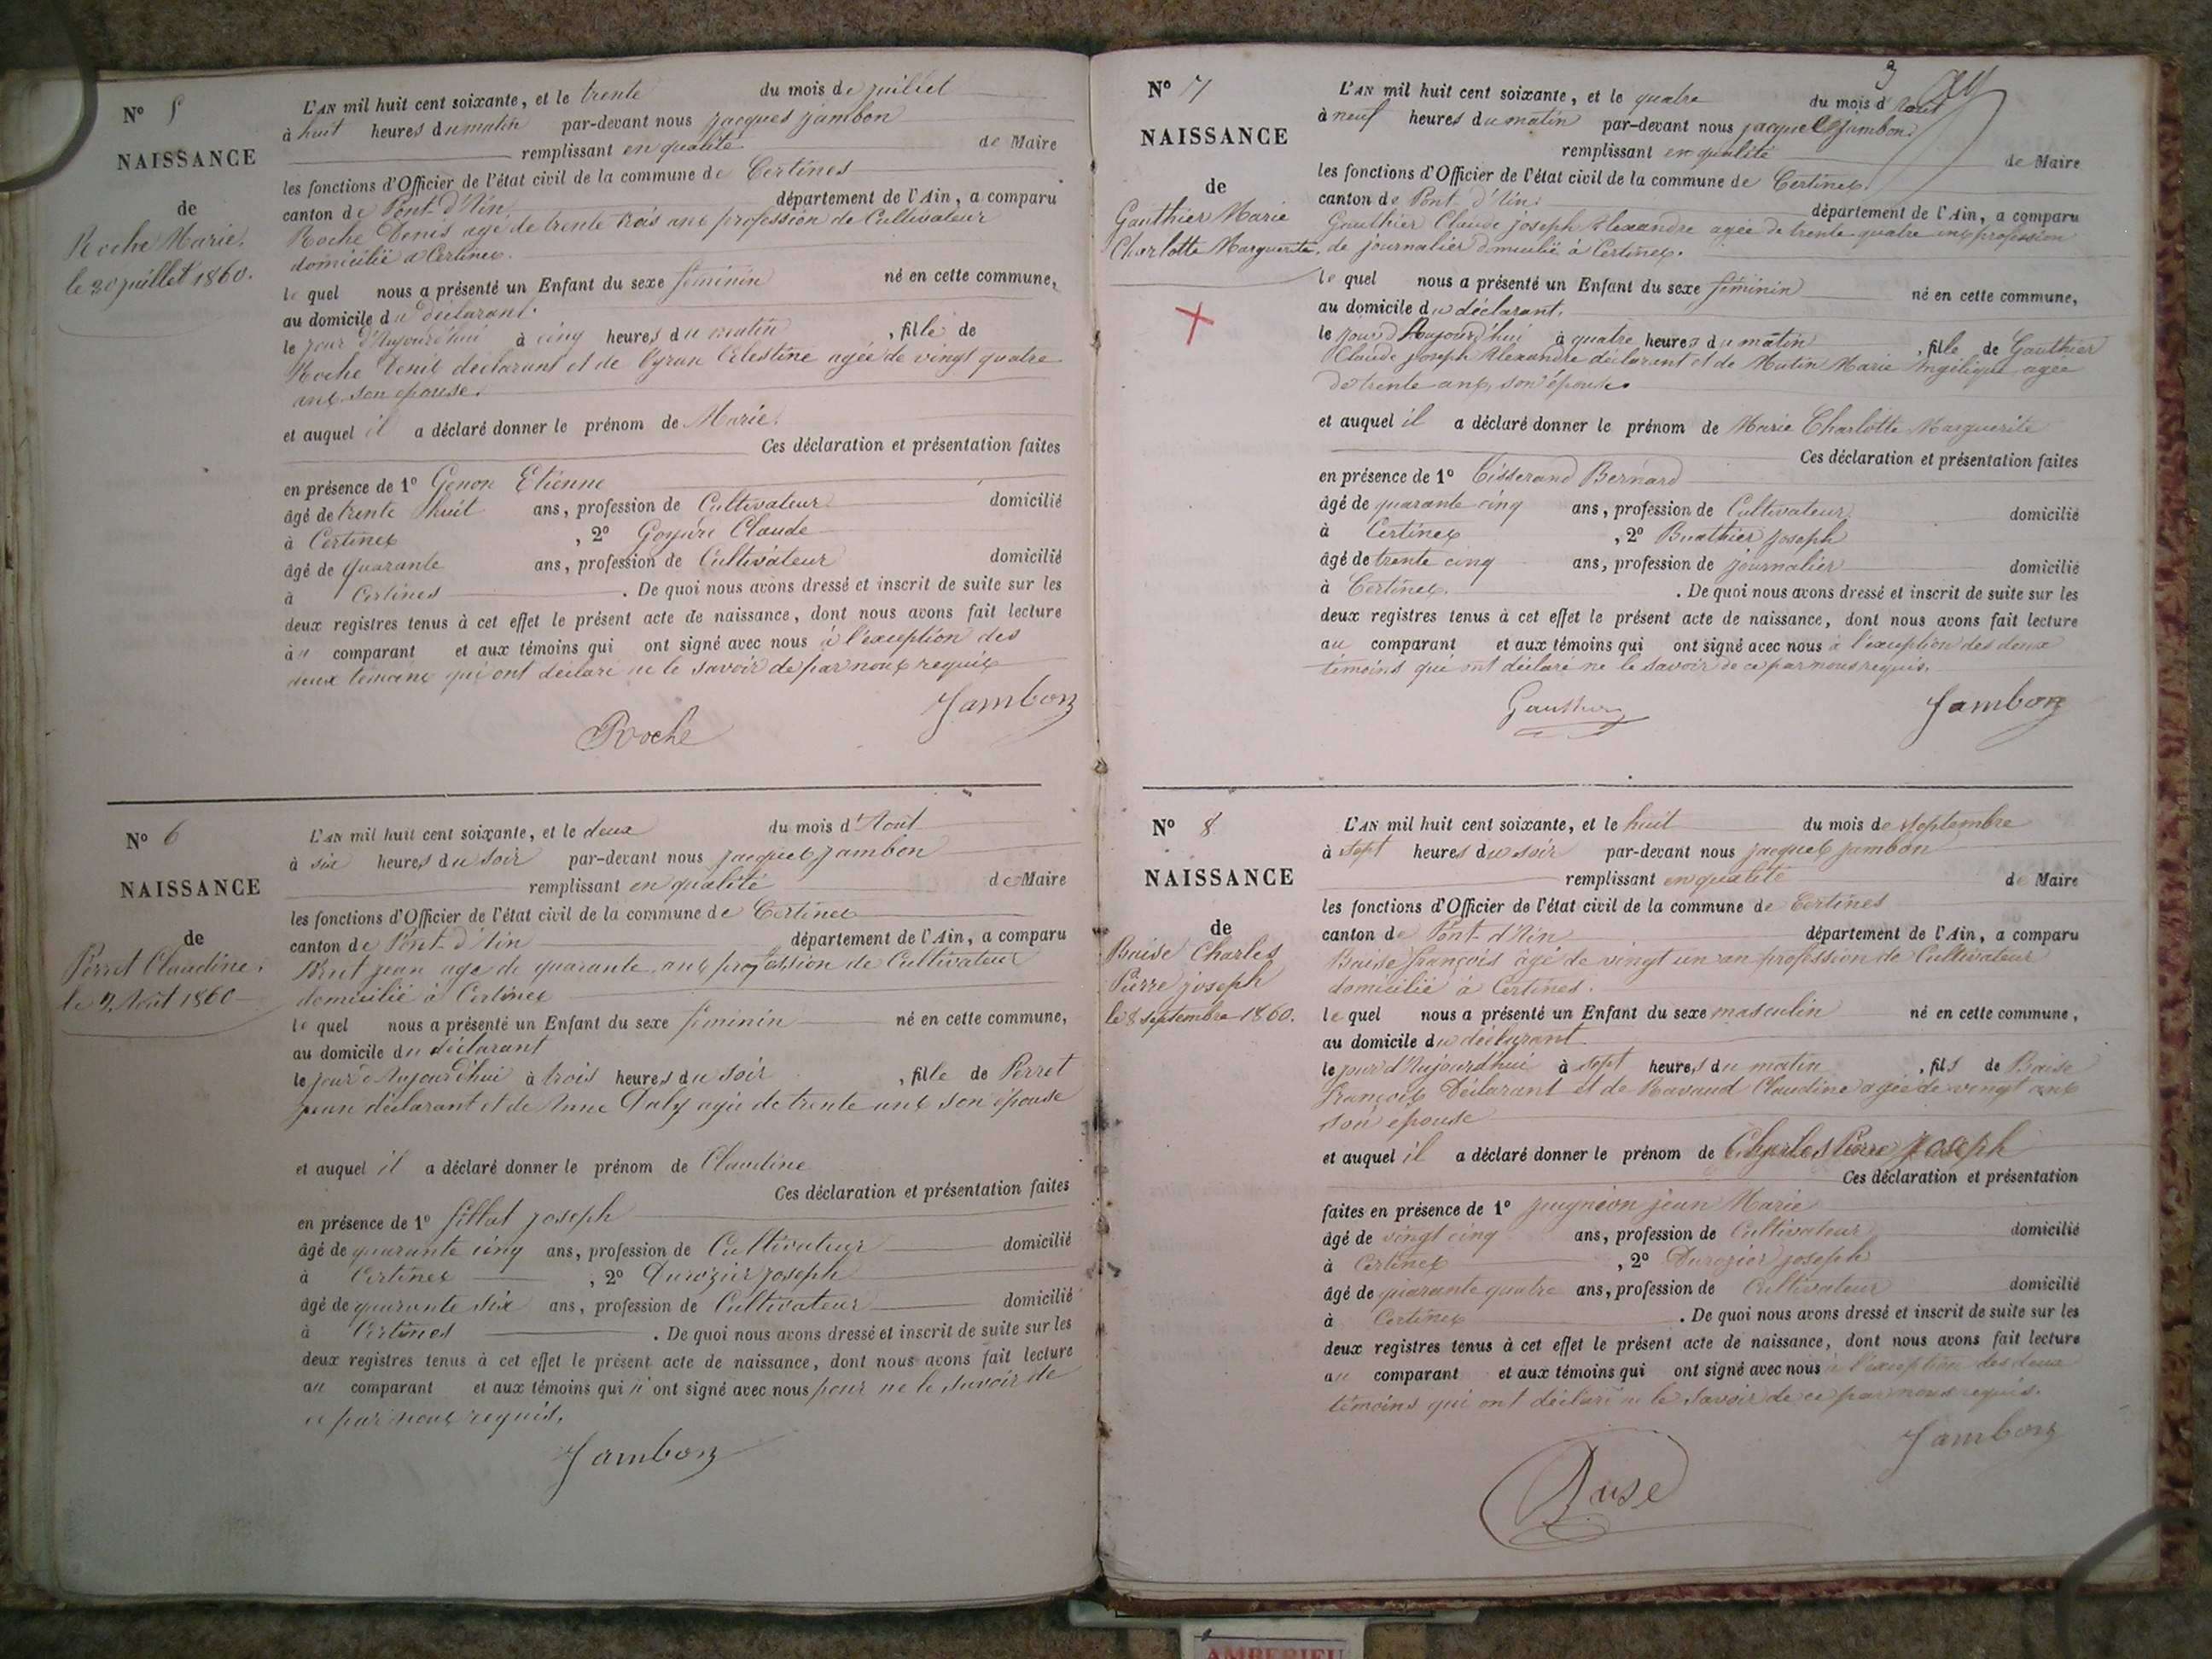 N° 5
NAISSANCE
de
Roche Marie.
le 30 juillet 1860.
L'AN mil huit cent soixante, et le trente du mois de juillet
à huit heures du matin par-devant nous jacques jambon
remplissant en qualité de Maire
les fonctions d'Officier de l'état civil de la commune de Certines
canton de Pont-d'Ain département de l'Ain, a comparu
Roche Denis agé de trente trois ans profession de Cultivateur
domicilié a Certines.
le quel nous a présenté un Enfant du sexe féminin né en cette commune,
au domicile du déclarant.
le jour d'Aujourd'hui à cinq heures du matin, fille de
Roche Denis déclarant et de Célestine agée de vingt quatre
ans son épouse.
et auquel il a déclaré donner le prénom de Marie.
Ces déclaration et présentation faites
en présence de 1° Genon Etienne
âgé de trente huit ans, profession de Cultivateur domicilié
à Certines, 2° Claude
âgé de quarante ans, profession de Cultivateur domicilié
à Certines. De quoi nous avons dressé et inscrit de suite sur les
deux registres tenus à cet effet le présent acte de naissance, dont nous avons fait lecture
au comparant et aux témoins qui ont signé avec nous à l'exception des
deux témoins qui ont déclaré ne le savoir de par nous requis
Jambon
Roche
N° 6
NAISSANCE
de
Perret Claudine.
le 2 Août 1860
L'AN mil huit cent soixante, et le deux du mois d'Août
à six heures du soir par-devant nous jacques jambon
remplissant en qualité de Maire
les fonctions d'Officier de l'état civil de la commune de Certines
canton de Pont-d'Ain département de l'Ain, a comparu
jean age de quarante ans profession de Cultivateur
domicilié à Certines
le quel nous a présenté un Enfant du sexe féminin né en cette commune,
au domicile du déclarant
le jour d'Aujourd'hui à trois heures du soir, fille de Perret
jean déclarant et de Anne Daly agée de trente ans son épouse
et auquel il a déclaré donner le prénom de Claudine
Ces déclaration et présentation faites
en présence de 1° joseph
âgé de quarante cinq ans, profession de Cultivateur domicilié
à Certines, 2° Durozier joseph
âgé de quarante six ans, profession de Cultivateur domicilié
à Certines. De quoi nous avons dressé et inscrit de suite sur les
deux registres tenus à cet effet le présent acte de naissance, dont nous avons fait lecture
au comparant et aux témoins qui n'ont signé avec nous pour ne le savoir de
ce par nous requis.
Jambon
3
N° 7
NAISSANCE
de
Gauthier Marie
Charlotte Marguerite.
L'AN mil huit cent soixante, et le quatre du mois d'Aout
à neuf heures du matin par-devant nous jacques Jambon
remplissant en qualité de Maire
les fonctions d'Officier de l'état civil de la commune de Certines
canton de Pont-d'Ain département de l'Ain, a comparu
Gauthier Claude joseph Alexandre agée de trente quatre ans profession
de journalier domicilié à Certines.
le quel nous a présenté un Enfant du sexe féminin né en cette commune,
au domicile du déclarant.
le jour d'Aujourd'hui à quatre heures du matin, fille de Gauthier
Claude joseph Alexandre déclarant et de Mutin Marie Angélique agée
de trente ans, son épouse.
et auquel il a déclaré donner le prénom de Marie Charlotte Marguerite
Ces déclaration et présentation faites
en présence de 1° Tisserand Bernard
âgé de quarante cinq ans, profession de Cultivateur domicilié
à Certines, 2° Buathier joseph
âgé de trente cinq ans, profession de journalier domicilié
à Certines. De quoi nous avons dressé et inscrit de suite sur les
deux registres tenus à cet effet le présent acte de naissance, dont nous avons fait lecture
au comparant et aux témoins qui ont signé avec nous à l'exception des deux
témoins qui ont déclaré ne le savoir de ce par nous requis.
Gauthier
Jambon
N° 8
NAISSANCE
de
Baise Charles
Pierre joseph
le 8 septembre 1860.
L'AN mil huit cent soixante, et le huit du mois de septembre
à sept heures du soir par-devant nous jacques jambon
remplissant en qualité de Maire
les fonctions d'Officier de l'état civil de la commune de Certines
canton de Pont-d'Ain département de l'Ain, a comparu
Baise françois agé de vingt un an profession de Cultivateur
domicilié à Certines.
le quel nous a présenté un Enfant du sexe masculin né en cette commune,
au domicile du déclarant
le jour d'Aujourd'hui à sept heures du matin, fils de Baise
françois Déclarant et de Ravaud Claudine agée de vingt ans
son épouse
et auquel il a déclaré donner le prénom de Charles Pierre joseph
Ces déclaration et présentation
faites en présence de 1° jean Marie
âgé de vingt cinq ans, profession de Cultivateur domicilié
à Certines, 2° Durozier joseph
âgé de quarante quatre ans, profession de Cultivateur domicilié
à Certines. De quoi nous avons dressé et inscrit de suite sur les
deux registres tenus à cet effet le présent acte de naissance, dont nous avons fait lecture
au comparant et aux témoins qui ont signé avec nous à l'exception des deux
témoins qui ont déclaré ne le savoir de ce par nous requis.
Jambon
Baise
AMBERIEU